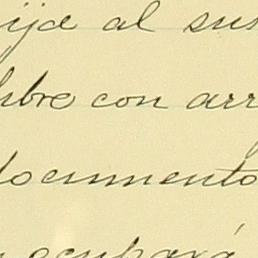 ije al sus
bre con arr
documento
ocupará